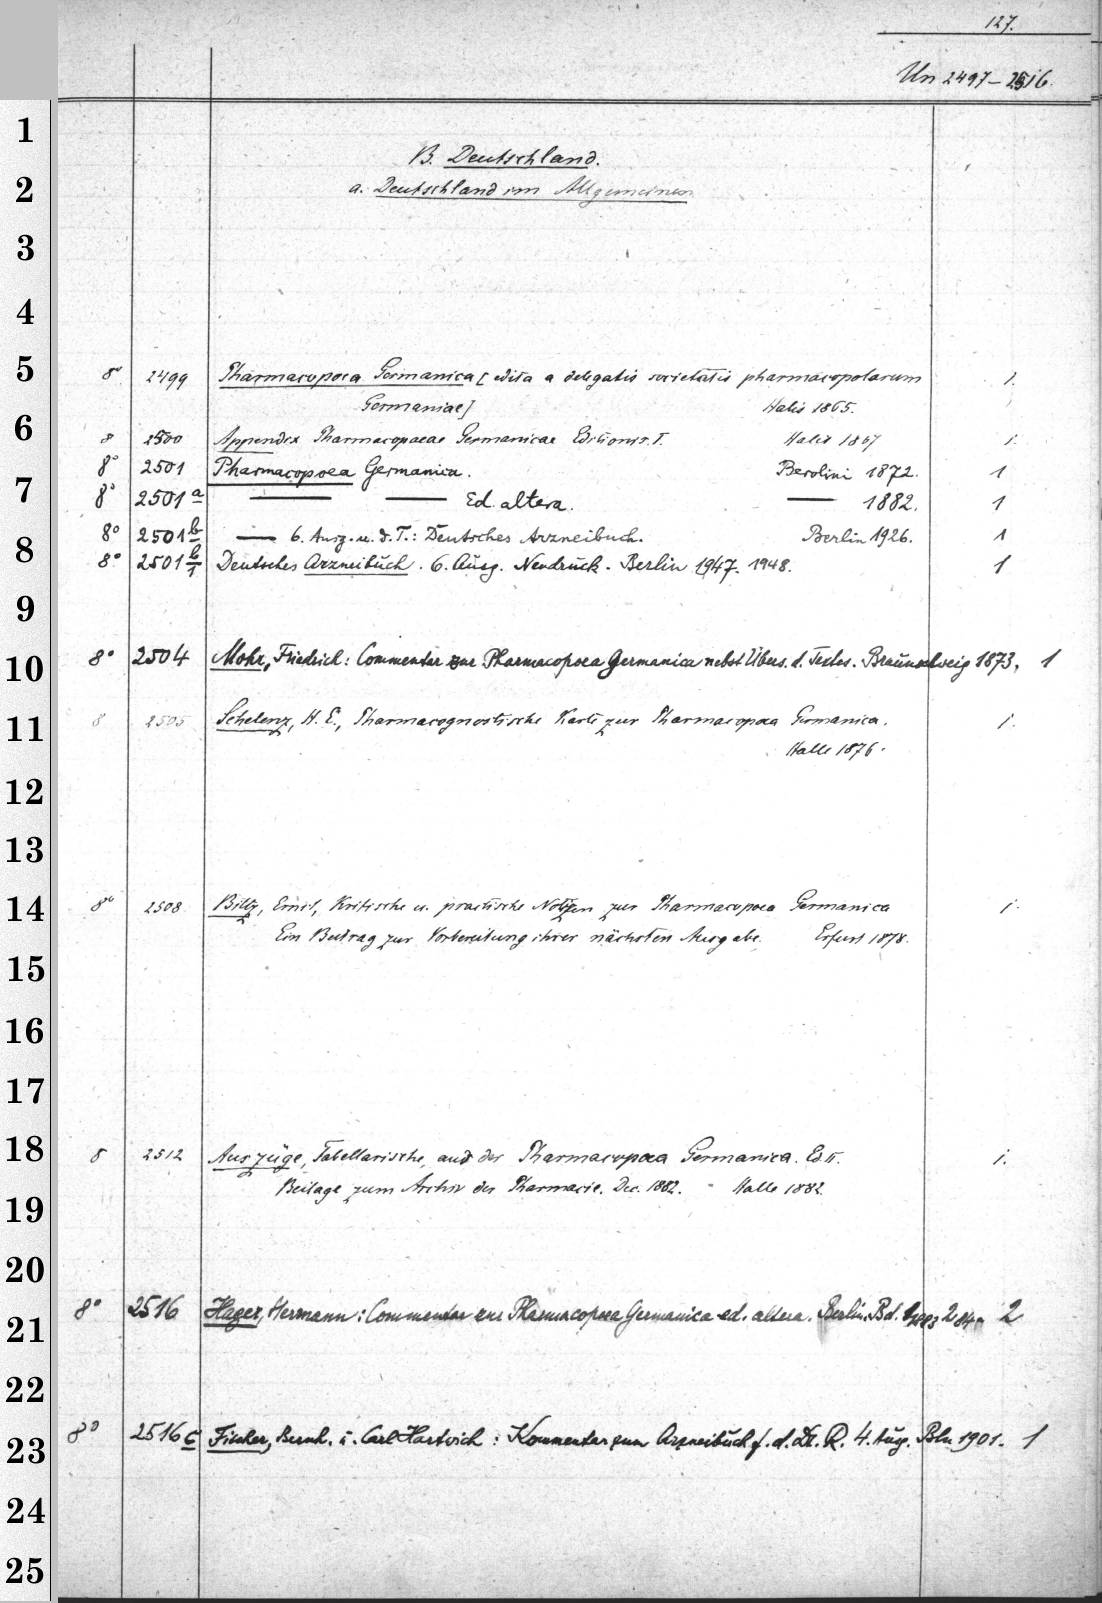 127.
Un 2497-2516.
1
B. Deutschland.
2
a. Deutschland im Allgemeinen
3
4
5
8° 2499 Pharmacopoea Germanica [edita a delegatis societatis pharmacopolarum 1.
Germaniae] Halis 1865.
6
8 2500 Appendix Pharmacopaeae Germanicae Editionis. I. Halis 1867 1.
8° 2501 Pharmacopoea Germanica. Berolini 1872. 1
7
8° 2501 a — — Ed. altera. — 1882. 1
8° 2501 b — 6. Ausg. u. d. T.: Deutsches Arzneibuch. Berlin 1926. 1
8
8° 2501 b/1 Deutsches Arzneibuch. 6. Ausg. Neudruck. Berlin 1947. 1948. 1
9
10
8° 2504 Mohr, Friedrich: Commentar zur Pharmacopoea Germanica nebst Übers. d. Textes. Braunschweig 1873. 1
11
8 2505 Schelenz, H. E., Pharmacognostische Karte zur Pharmacopoea Germanica. 1.
Halle 1876.
12
13
14
8° 2508 Biltz, Ernst, Kritische u. practische Notizen zur Pharmacopoea Germanica 1.
Ein Beitrag zur Vorbereitung ihrer nächsten Ausgabe. Erfurt 1878.
15
16
17
18
8 2512 Auszüge, Tabellarische, aus der Pharmacopoea Germanica. Ed. II. 1.
Beilage zum Archiv der Pharmacie. Dec. 1882. - Halle 1882.
19
20
21
8° 2516 Hager, Hermann: Commentar zur Pharmacopoea Germanica ed. altera. Berlin. Bd. 1 1883 2 84. 2
22
23
8° 2516 c Fischer, Bernh. u. Carl Hartwich: Kommentar zum Arzneibuch f. d. Dt. R. 4. Ausg. Bln 1901. 1
24
25